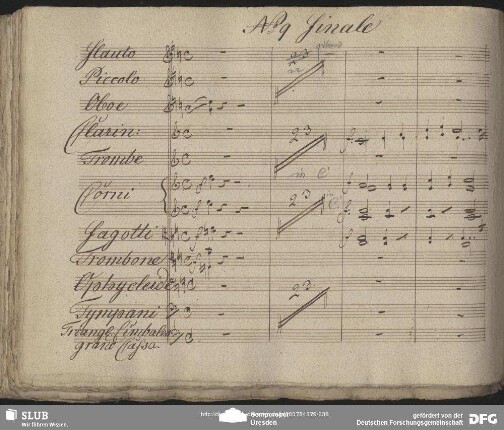 No 9 Finale
Flauto
Piccolo
Oboe
Clarin:
Trombe
Corni
Fagotti
Trombone
Ophycleide
Tympani
Triangl. Cimbal
gran Cassa
23
23
in C
23
23
SLUB
Wir führen Wissen.
Dresden
gefördert von der
Deutschen Forschungsgemeinschaft
DFG